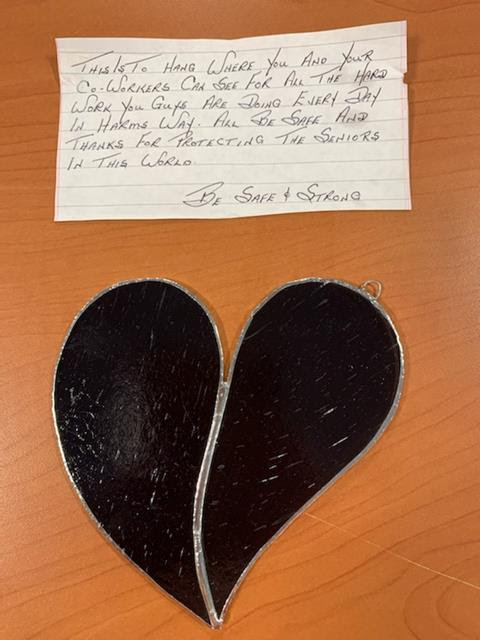 THIS IS TO HANG WHERE YOU AND YOUR
CO-WORKERS CAN SEE FOR ALL THE HARD
WORK YOU GUYS ARE DOING EVERY DAY
IN HARMS WAY. ALL BE SAFE AND
THANKS FOR PROTECTING THE SENIORS
IN THIS WORLD.
BE SAFE & STRONG